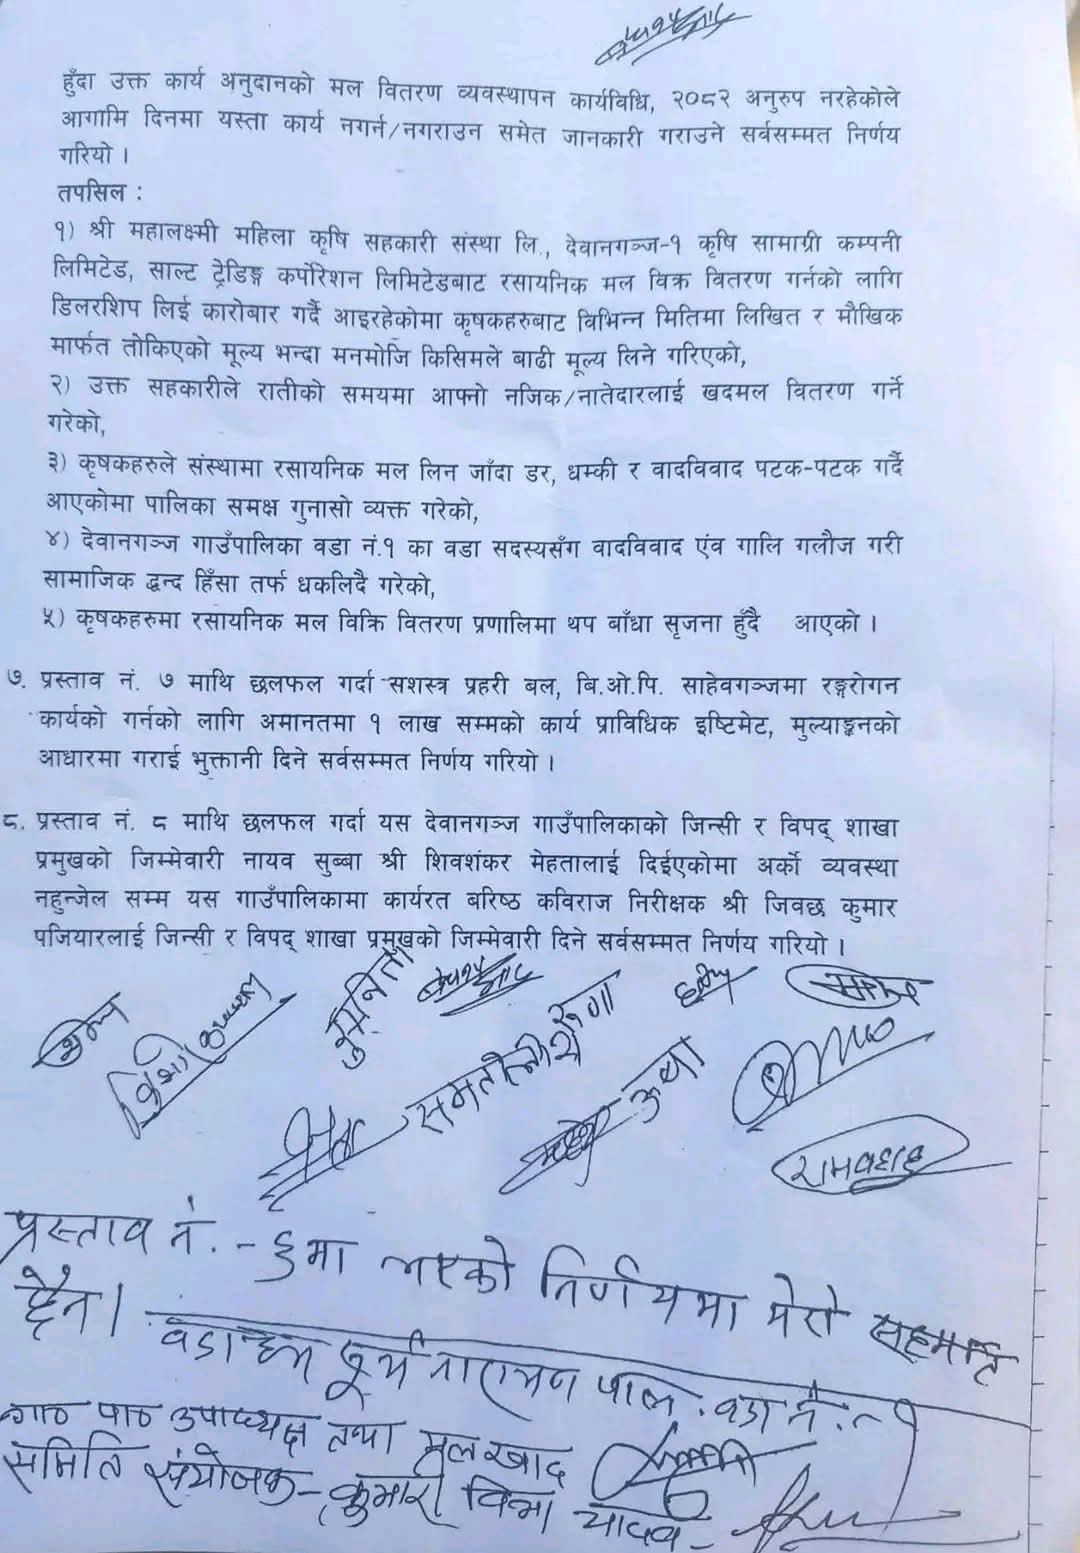 हुँदा उक्त कार्य अनुदानको मल वितरण व्यवस्थापन कार्यविधि, २०८२ अनुरुप नरहेकोले
आगामि दिनमा यस्ता कार्य नगर्न/नगराउन समेत जानकारी गराउने सर्वसम्मत निर्णय
गरियो ।
तपसिल :
१) श्री महालक्ष्मी महिला कृषि सहकारी संस्था लि., देवानगञ्ज-१ कृषि सामाग्री कम्पनी
लिमिटेड, साल्ट ट्रेडिङ्ग कर्पोरेशन लिमिटेडबाट रसायनिक मल विक्र वितरण गर्नको लागि
डिलरशिप लिई कारोबार गर्दै आइरहेकोमा कृषकहरुबाट विभिन्न मितिमा लिखित र मौखिक
मार्फत तोकिएको मूल्य भन्दा मनमोजि किसिमले बाढी मूल्य लिने गरिएको,
२) उक्त सहकारीले रातीको समयमा आफ्नो नजिक/नातेदारलाई खदमल वितरण गर्ने
गरेको,
३) कृषकहरुले संस्थामा रसायनिक मल लिन जाँदा डर, धम्की र वादविवाद पटक-पटक गर्दै
आएकोमा पालिका समक्ष गुनासो व्यक्त गरेको,
४) देवानगञ्ज गाउँपालिका वडा नं.१ का वडा सदस्यसँग वादविवाद एंव गालि गलौज गरी
सामाजिक द्वन्द हिँसा तर्फ धकलिदै गरेको,
५) कृषकहरुमा रसायनिक मल विक्रि वितरण प्रणालिमा थप बाँधा सृजना हुँदै आएको ।
७. प्रस्ताव नं. ७ माथि छलफल गर्दा सशस्त्र प्रहरी बल, बि.ओ.पि. साहेवगञ्जमा रङ्गरोगन
कार्यको गर्नको लागि अमानतमा १ लाख सम्मको कार्य प्राविधिक इष्टिमेट, मुल्याङ्कनको
आधारमा गराई भुक्तानी दिने सर्वसम्मत निर्णय गरियो ।
८. प्रस्ताव नं. ८ माथि छलफल गर्दा यस देवानगञ्ज गाउँपालिकाको जिन्सी र विपद् शाखा
प्रमुखको जिम्मेवारी नायव सुब्बा श्री शिवशंकर मेहतालाई दिईएकोमा अर्को व्यवस्था
नहुन्जेल सम्म यस गाउँपालिकामा कार्यरत बरिष्ठ कविराज निरीक्षक श्री जिवछ कुमार
पजियारलाई जिन्सी र विपद् शाखा प्रमुखको जिम्मेवारी दिने सर्वसम्मत निर्णय गरियो ।
सुनिता
उषा
प्रस्ताव नं. - ६मा भएको निर्णयमा मेरो सहमति
छैन।
वडाध्यक्ष सूर्य नारायण पाल वडा नं.
गाउँ पा० उपाध्यक्ष तथा मलखाद
समिति संयोजक - कुमारी विभा यादव -